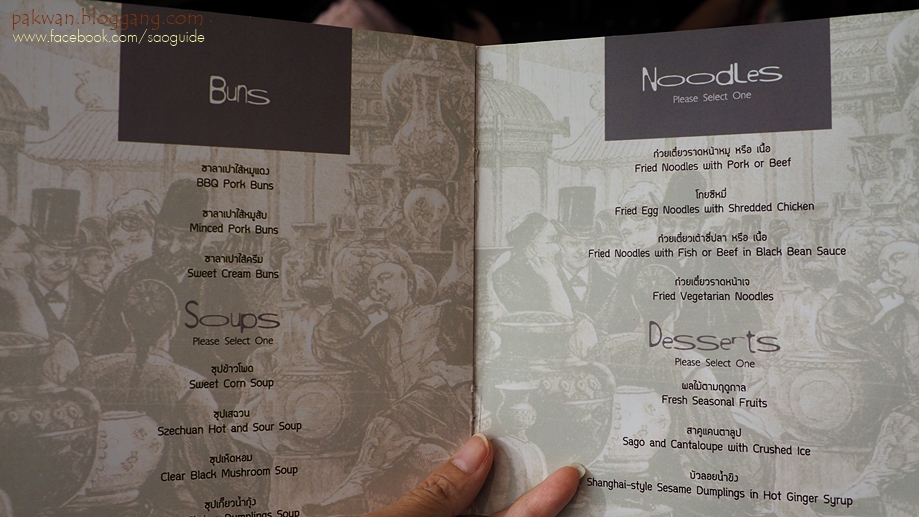 pakwan.bloggang.com
www.facebook.com/saoguide
Buns
ซาลาเปาไส้หมูแดง
BBQ Pork Buns
ซาลาเปาไส้หมูสับ
Minced Pork Buns
ซาลาเปาไส้ครีม
Sweet Cream Buns
Soups
Please Select One
ซุปข้าวโพด
Sweet Corn Soup
ซุปเสฉวน
Szechuan Hot and Sour Soup
ซุปเห็ดหอม
Clear Black Mushroom Soup
ซุปเกี๊ยวน้ำกุ้ง
Dumplings Soup
Noodles
Please Select One
ก๋วยเตี๋ยวราดหน้าหมู หรือ เนื้อ
Fried Noodles with Pork or Beef
โกยซีหมี่
Fried Egg Noodles with Shredded Chicken
ก๋วยเตี๋ยวเต้าซี่ปลา หรือ เนื้อ
Fried Noodles with Fish or Beef in Black Bean Sauce
ก๋วยเตี๋ยวราดหน้าเจ
Fried Vegetarian Noodles
Desserts
Please Select One
ผลไม้ตามฤดูกาล
Fresh Seasonal Fruits
สาคูแคนตาลูป
Sago and Cantaloupe with Crushed Ice
บัวลอยน้ำขิง
Shanghai-style Sesame Dumplings in Hot Ginger Syrup